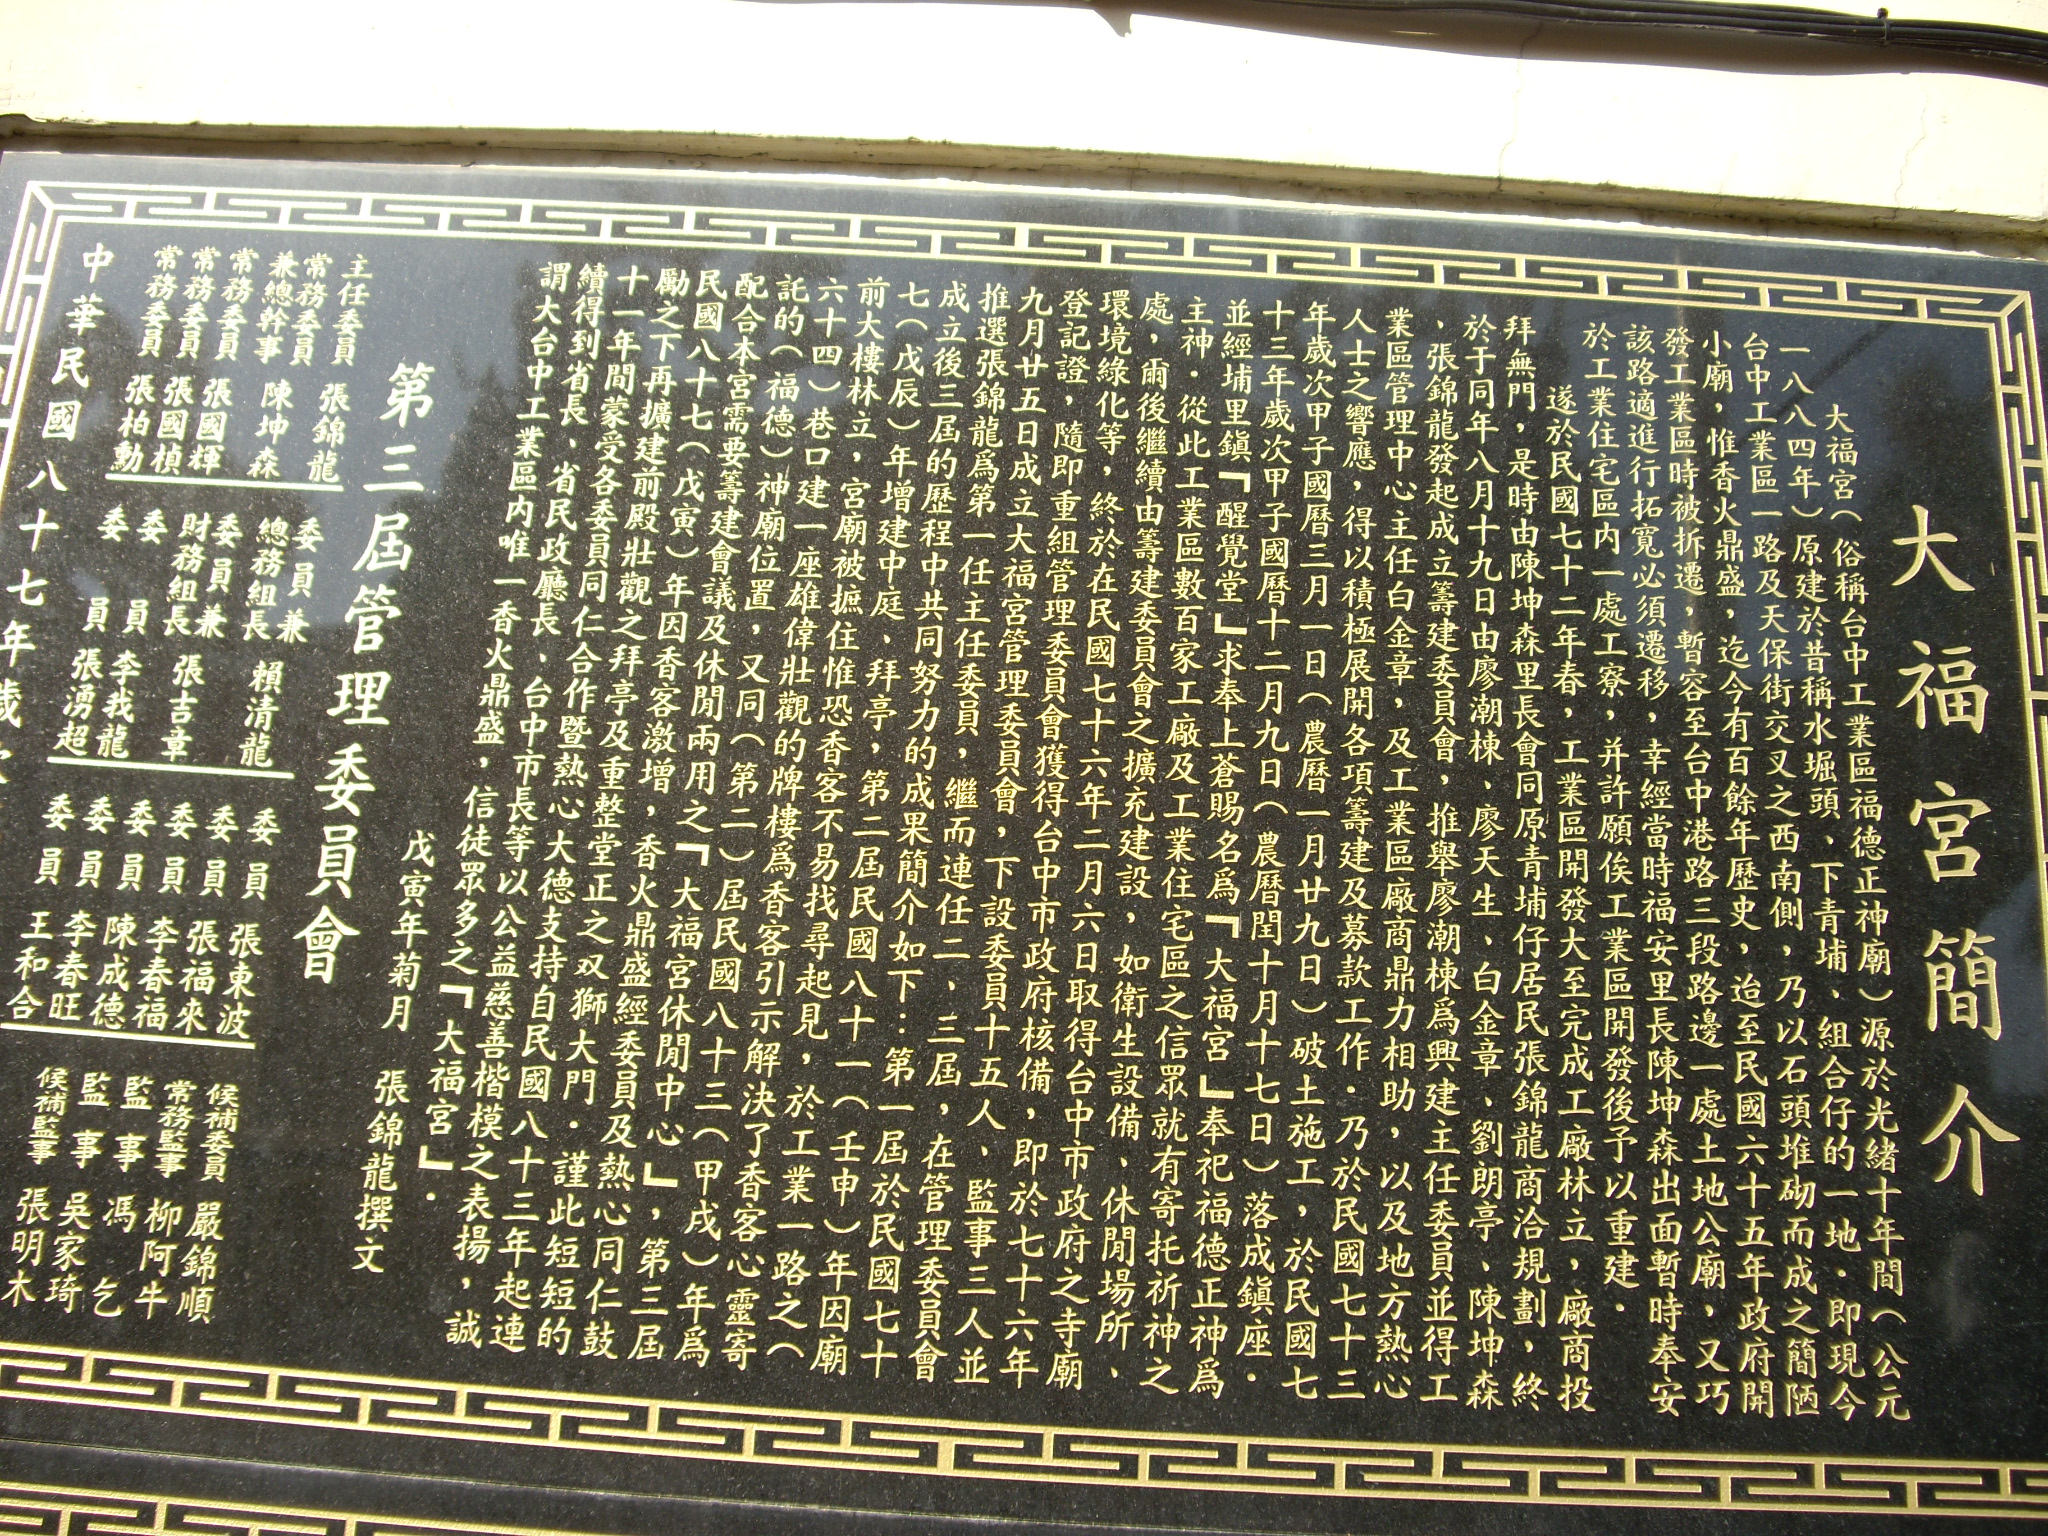 大福宮簡介
大福宮（俗稱台中工業區福德正神廟）源於光緒十年間（公元
一八八四年）原建於昔稱水堀頭、下青埔、組合仔的一地．即現今
台中工業區一路及天保街交叉之西南側，乃以石頭堆砌而成之簡陋
小廟，惟香火鼎盛，迄今有百餘年歷史，迨至民國六十五年政府開
發工業區時被拆遷，暫容至台中港路三段路邊一處土地公廟，又巧
該路適進行拓寬必須遷移，幸經當時福安里長陳坤森出面暫時奉安
於工業住宅區內一處工寮，并許願俟工業區開發後予以重建．
遂於民國七十二年春，工業區開發大至完成工廠林立，廠商投
拜無門，是時由陳坤森里長會同原青埔仔居民張錦龍商洽規劃，終
於于同年八月十九日由廖潮棟、廖天生、白金章、劉朗亭、陳坤森
、張錦龍發起成立籌建委員會，推舉廖潮棟爲興建主任委員並得工
業區管理中心主任白金章，及工業區廠商鼎力相助，以及地方熱心
人士之響應，得以積極展開各項籌建及募款工作．乃於民國七十三
年歲次甲子國曆三月一日（農曆一月廿九日）破土施工，於民國七
十三年歲次甲子國曆十二月九日（農曆閏十月十七日）落成鎮座．
並經埔里鎮「醒覺堂」求奉上蒼賜名爲「大福宮」奉祀福德正神爲
主神．從此工業區數百家工廠及工業住宅區之信眾就有寄托祈神之
處，爾後繼續由籌建委員會之擴充建設，如衛生設備、休閒場所、
環境綠化等，終於在民國七十六年二月六日取得台中市政府之寺廟
登記證，隨即重組管理委員會獲得台中市政府核備，即於七十六年
九月廿五日成立大福宮管理委員會，下設委員十五人、監事三人並
推選張錦龍爲第一任主任委員，繼而連任二、三屆，在管理委員會
成立後三屆的歷程中共同努力的成果簡介如下：第一屆於民國七十
七（戊辰）年增建中庭、拜亭，第二屆民國八十一（壬申）年因廟
前大樓林立，宮廟被摭住惟恐香客不易找尋起見，於工業一路之（
六十四）巷口建一座雄偉壯觀的牌樓爲香客引示解決了香客心靈寄
託的（福德）神廟位置，又同（第二）屆民國八十三（甲戌）年爲
配合本宮需要籌建會議及休閒兩用之「大福宮休閒中心」，第三屆
民國八十七（戊寅）年因香客激增，香火鼎盛經委員及熱心同仁鼓
勵之下再擴建前殿壯觀之拜亭及重整堂正之双獅大門．謹此短短的
十一年間蒙受各委員同仁合作暨熱心大德支持自民國八十三年起連
續得到省長、省民政廳長、台中市長等以公益慈善楷模之表揚，誠
謂大台中工業區內唯一香火鼎盛，信徒眾多之「大福宮」．
戊寅年菊月　張錦龍撰文
第三屆管理委員會
主任委員　張錦龍
常務委員兼總幹事　陳坤森
常務委員　張國輝
常務委員　張國楨
常務委員　張柏勳
委員兼總務組長　賴清龍
委員兼財務組長　張吉章
委員　李我龍
委員　張湧超
委員　張東波
委員　張福來
委員　李春福
委員　陳成德
委員　李春旺
委員　王和合
候補委員　嚴錦順
常務監事　柳阿牛
監事　馮乞
監事　吳家琦
候補監事　張明木
中華民國八十七年歲